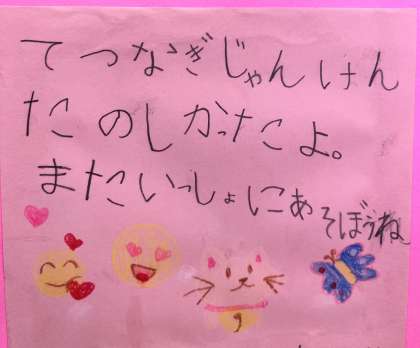 てつなぎじゃんけん
たのしかったよ。
またいっしょにあそぼうね